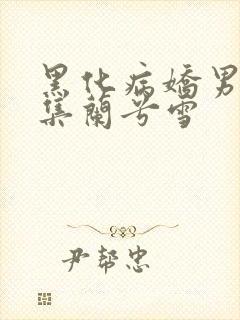 黑化病嬌男
集蘭兮雪
尹幫忠